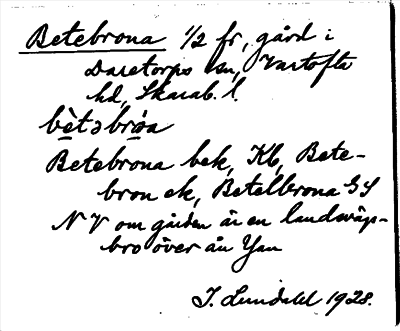 Betebrona 1/2 fr, gård i
Daretorps sn, Vartofta
hd, Skarab. l.
bètəbrǿa
Betebrona bek, Kb, Bete-
bron ek, Betelbrona GS
N V om gården är en landsvägs-
bro över ån Yan
I. Lundahl 1928.